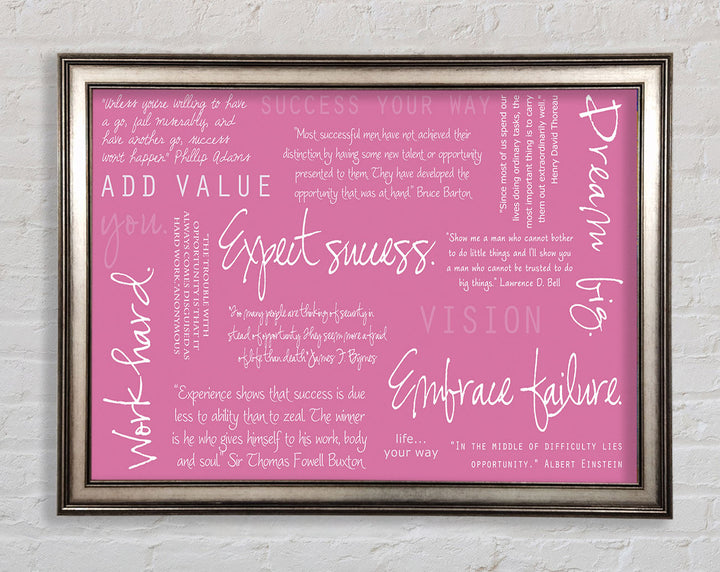 "Unless you're willing to have
a go, fail miserably, and
have another go, success
won't happen" Phillip Adams
SUCCESS YOUR WAY
"Most successful men have not achieved their
distinction by having some new talent or opportunity
presented to them. They have developed the
opportunity that was at hand." Bruce Barton
"Since most of us spend our
lives doing ordinary tasks, the
most important thing is to carry
them out extraordinarily well."
Henry David Thoreau
Dream big.
ADD VALUE
you.
THE TROUBLE WITH
OPPORTUNITY IS THAT IT
ALWAYS COMES DISGUISED AS
HARD WORK."ANONYMOUS
Expect success.
"Show me a man who cannot bother
to do little things and I'll show you
a man who cannot be trusted to do
big things." Lawrence D. Bell
Work hard.
"Too many people are thinking of security in
stead of opportunity. They seem more afraid
of life than death" James F. Byrnes
VISION
Embrace failure.
"Experience shows that success is due
less to ability than to zeal. The winner
is he who gives himself to his work, body
and soul." Sir Thomas Fowell Buxton
life...
your way
"In the middle of difficulty lies
opportunity." Albert Einstein